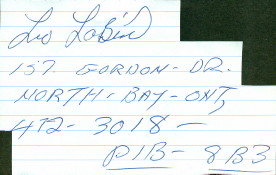 Leo Labine
157 GORDON - DR.
NORTH - BAY - ONT,
472 - 3018 -
P1B - 8B3